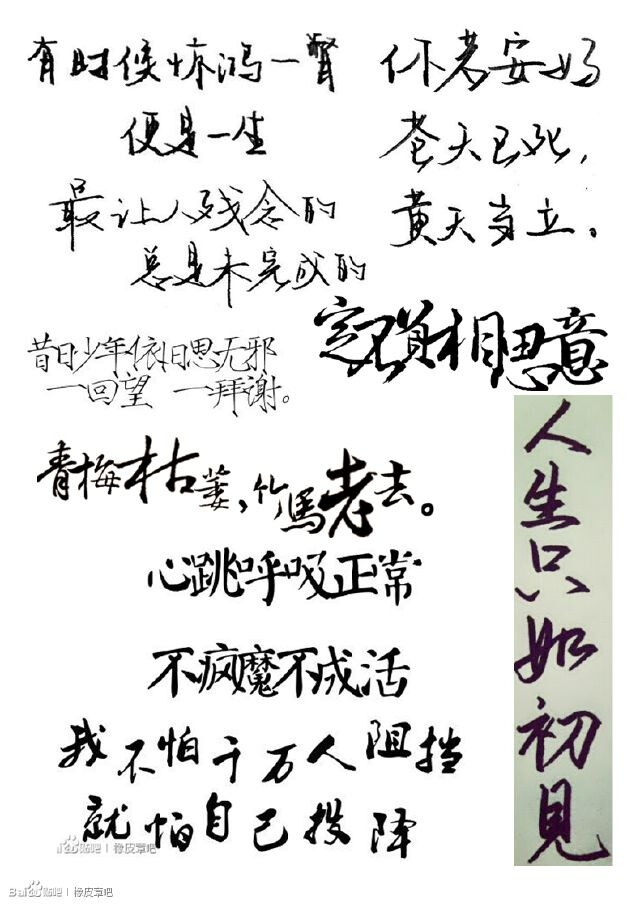 有时候惊鸿一瞥
便是一生
最让人残念的
总是未完成的
你若安好
苍天已死，
黄天当立。
定不負相思意
昔日少年依旧思无邪
一回望 一拜谢。
青梅枯萎，竹馬老去。
心跳呼吸正常
不疯魔不成活
我不怕千万人阻挡
就怕自己投降
人生只如初見
贴吧 | 橡皮章吧
Bai贴吧 | 橡皮章吧